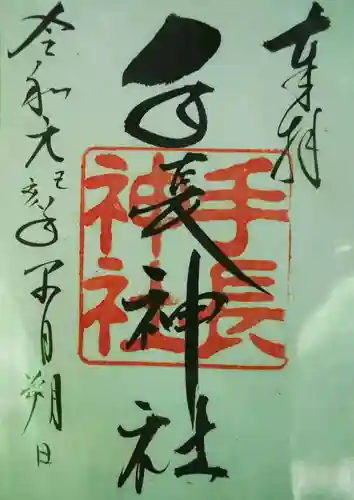 奉拝
手長神社
手長
神社
令和元己亥年五月朔日